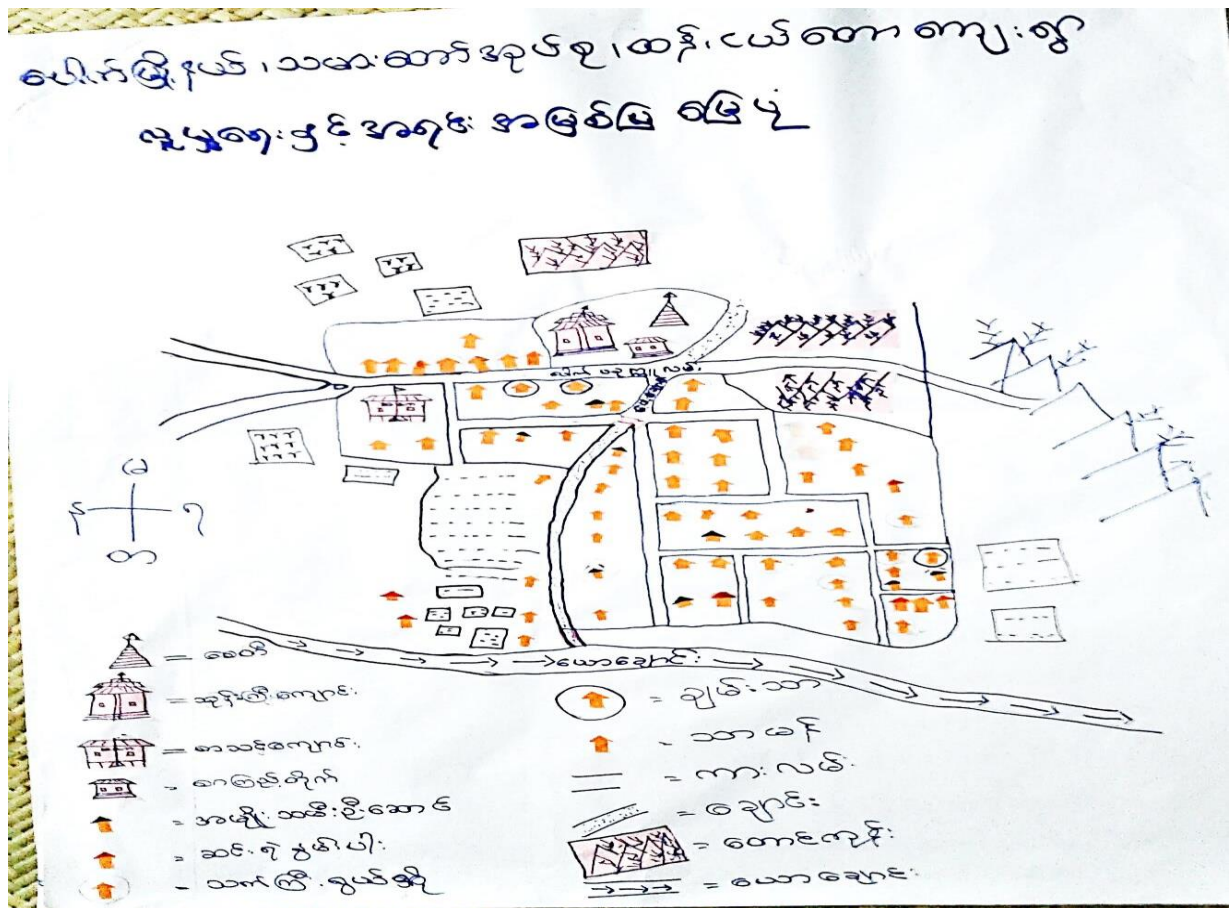 ပေါက်မြို့နယ်၊ သမားတော်အုပ်စု၊ ထန်းငယ်တောကျေးရွာ
လူမှုရေးနှင့်အရင်းအမြစ်ပြ မြေပုံ
ပေါက် လမ်း
မ
န ရ
တ
ယောချောင်း
= စေတီ
= ဘုန်းကြီးကျောင်း
= စာသင်ကျောင်း
= စာကြည့်တိုက်
= အမျိုးသမီးဦးဆောင်
= ဆင်းရဲနွမ်းပါး
= သက်ကြီးရွယ်အို
= ချမ်းသာ
= သာမန်
= ကားလမ်း
= ချောင်း
= တောင်ကုန်း
= ယောချောင်း